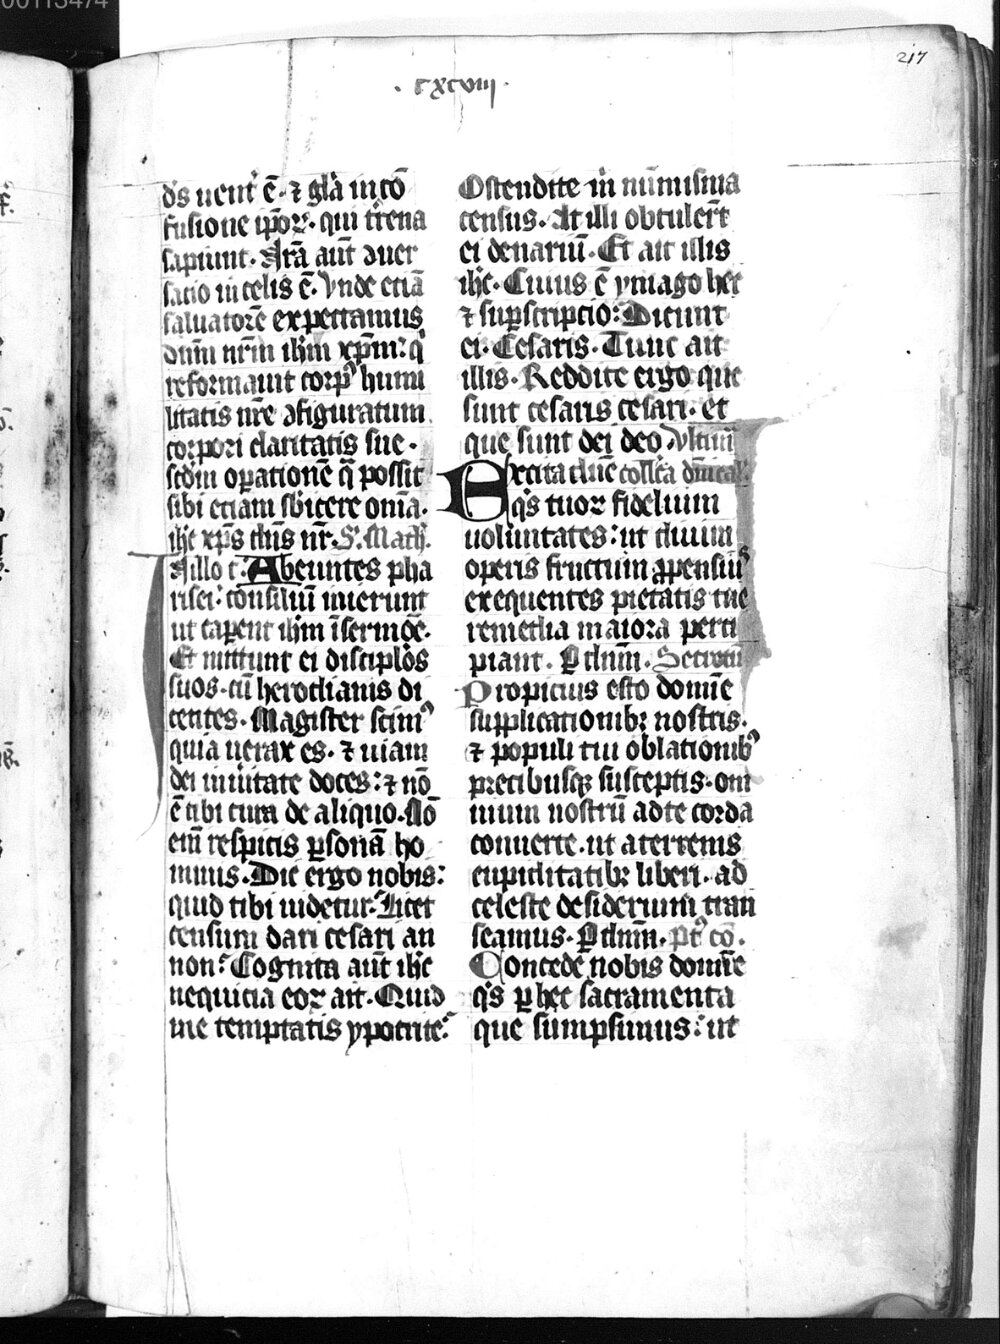 00113474
217
· cxcviii ·
ds uent̾ ē. ⁊ gl̄a in cō
fusione ip̄oꝝ. qui t̾rena
sapiunt. Nr̄a aūt ꝯuer
satio in celis ē. Vnde etiā
saluatorē expectamus
dn̄m nr̄m ihm̄ xp̄m: q̇
reformauit corpꝰ humi
litatis nr̄e ꝯfiguratum
corpori claritatis sue.
scdm̄ oꝑationē q̄ possit
sibi etiam sb̾icere om̄ia.
ihc̄ xp̄s dn̄s nr̄. S. Math̄.
N illo t. Abeuntes pha
risei: consiliū inierunt
ut caperent ihm̄ ī sermōe.
Et mittunt ei discipl̾os
suos. cū herodianis di
centes. Magister scimꝰ
quia uerax es. ⁊ uiam
dei in uītate doces: ⁊ nō
ē tibi cura de aliquo. Nō
em̄ respicis ꝑsonā ho
minis. Dic ergo nobis:
quid tibi uidetur. Licet
censum dari cesari an
non: Cognita aūt ihc̄
nequicia eoꝝ ait. Quid
me temptatis ypocrite:
Ostendite m̄ numisma
census. At illi obtuler̄t
ei denariū. Et ait illis
ihc̄. Cuius ē ymago hec
⁊ suꝑscriptio: Dicunt
ei. Cesaris. Tunc ait
illis. Reddite ergo que
sunt cesaris cesari. et
que sunt dei deo. Vltim̄
Excita dn̄e coll̄cā dn̄ical̄
q̄s tuoꝝ fidelium
uoluntates: ut diuini
operis fructum ꝓpensiꝰ
exequentes pietatis tue
remedia maiora perci
piant. P̲ dn̄m̄. Secretū
Propicius esto domīe
supplicationibꝫ nostris.
⁊ populi tui oblationibꝰ
precibusqꝫ susceptis. om
nium nostrū ad te corda
conuerte. ut a terrenis
cupiditatibꝫ liberi. ad
celeste desiderium tran
seamus. P̲ dn̄m̄. Pt̾ cō.
Concede nobis domīe
q̄s ꝑ hec sacramenta
que sumpsimus: ut